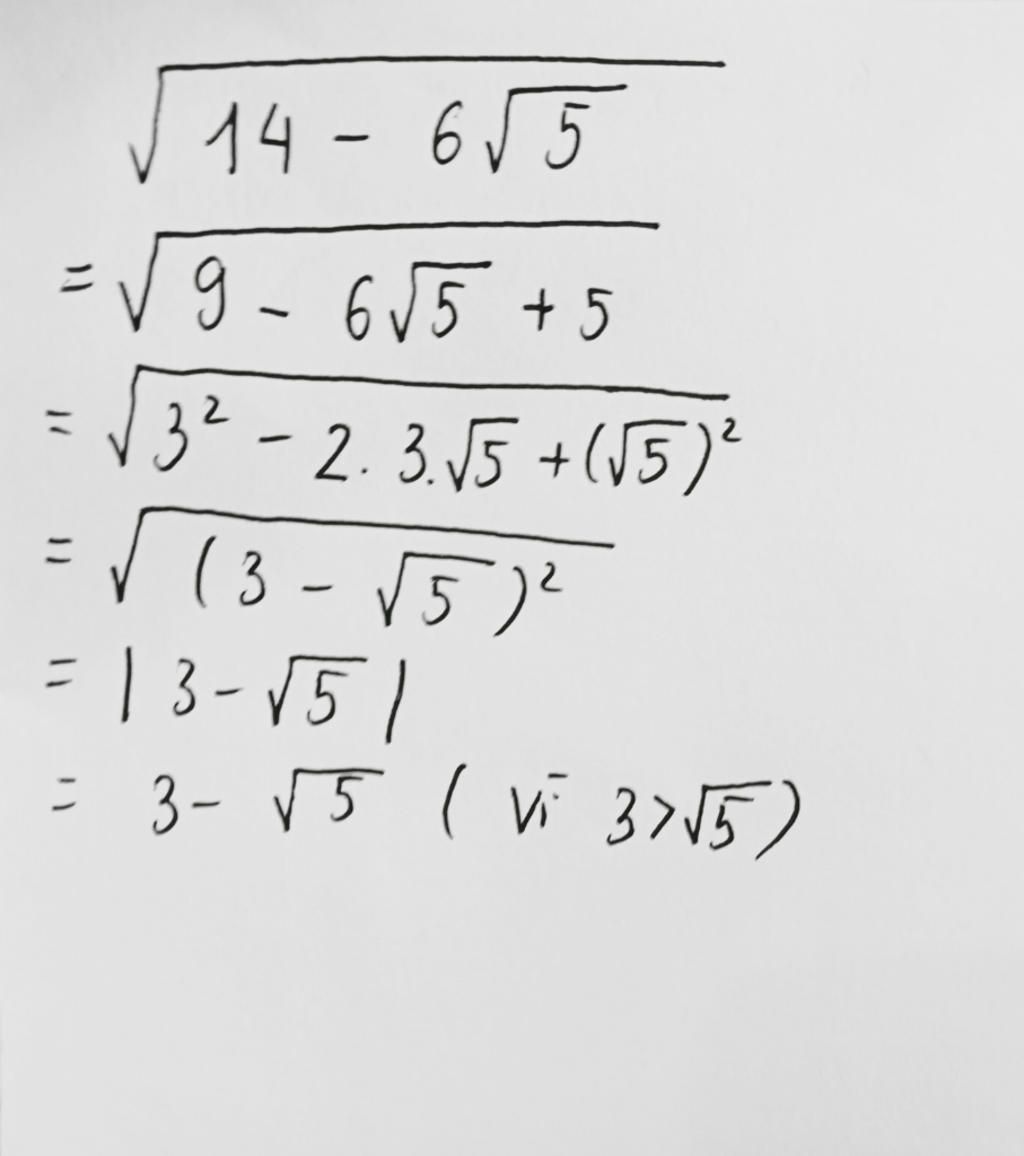 √(14 - 6√5)
= √(9 - 6√5 + 5)
= √(3² - 2. 3.√5 + (√5)²)
= √((3 - √5)²)
= |3 - √5|
= 3 - √5 ( vì 3 > √5)